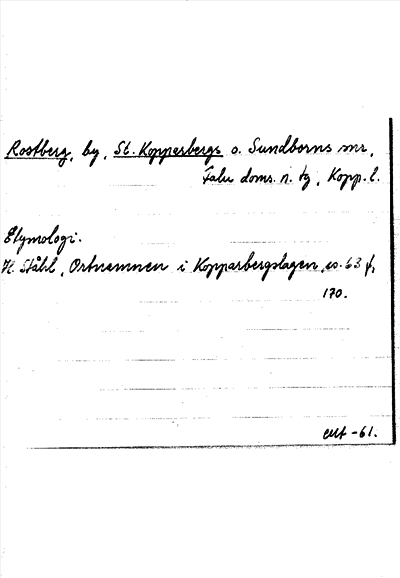 Rostberg, by, St. Kopparbergs o. Sundborns snr,
Falu doms. n. tg, Kopp. l.
Etymologi.
H. Ståhl, Ortnamnen i Kopparbergslagen, s. 63 f,
170.
-61.